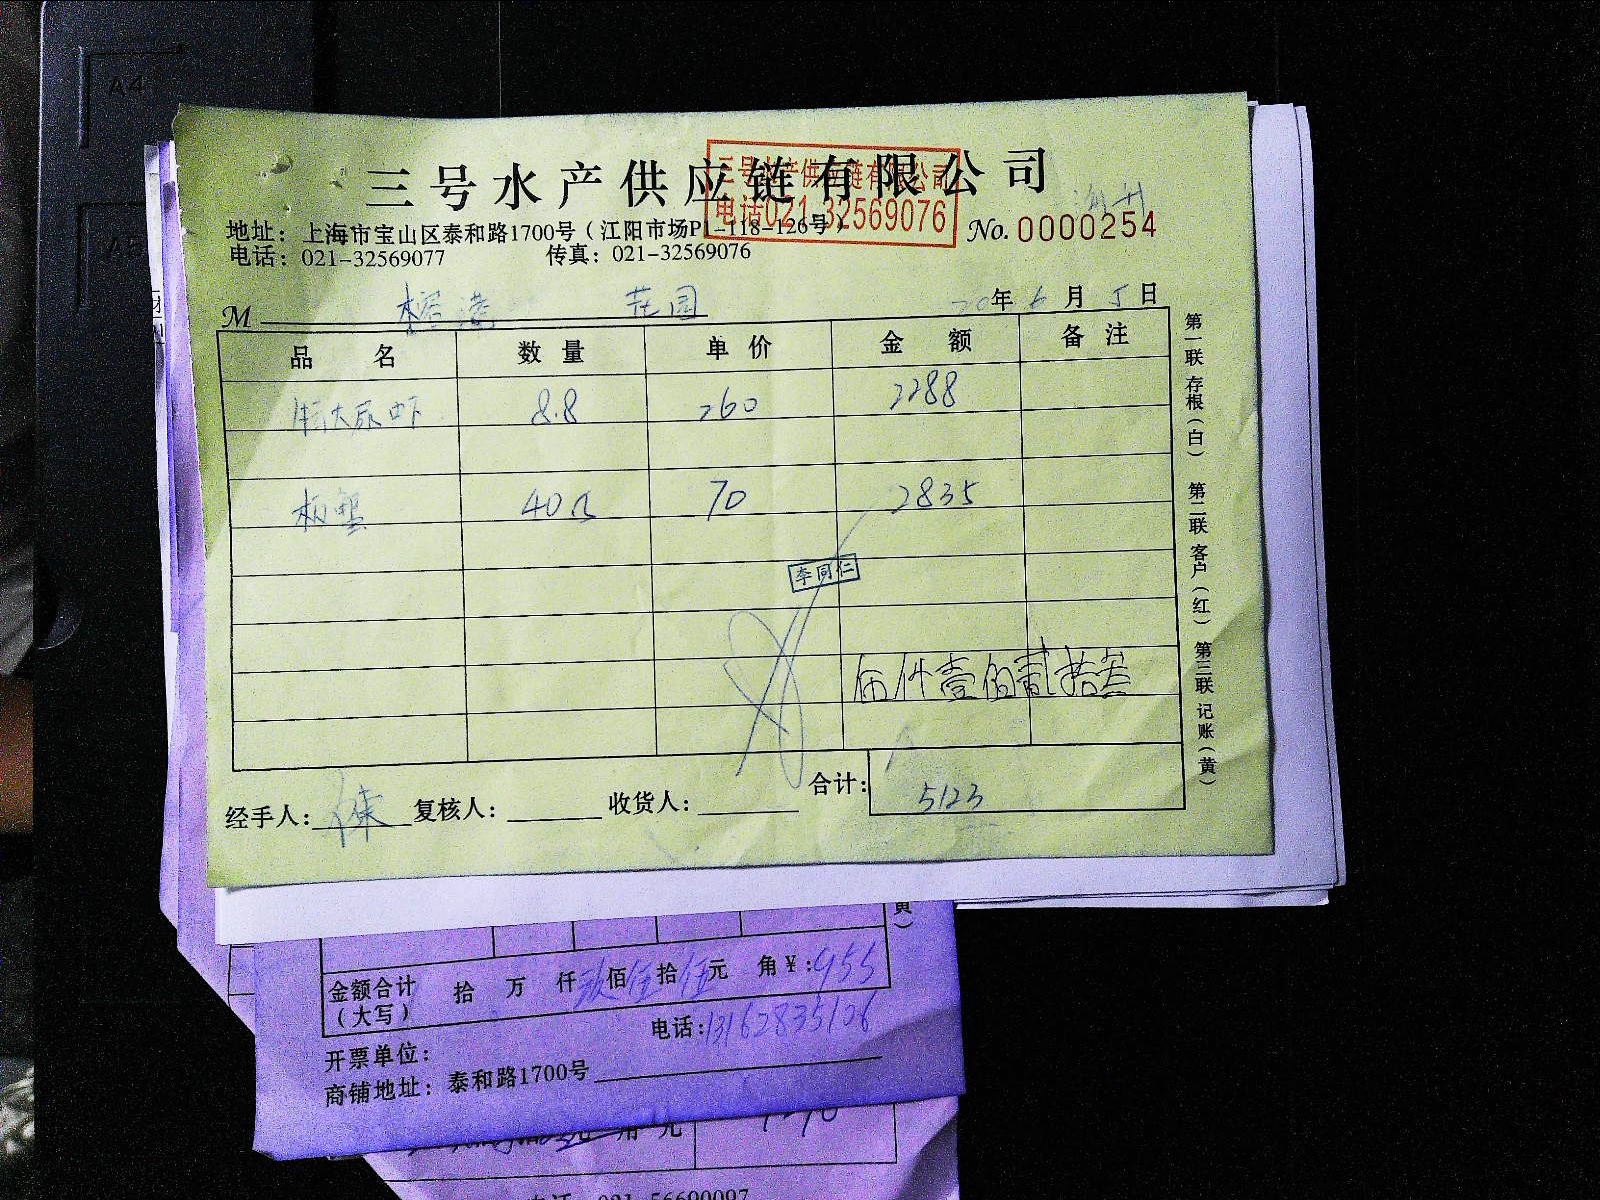 A4
A5
三号水产供应链有限公司
三号水产供应链有限公司
电话021-32569076
地址：上海市宝山区泰和路1700号（江阳市场P1-118-126号）
No. 0000254
电话：021-32569077 传真：021-32569076
M 花园 20年6月5日
品 名 数 量 单 价 金 额 备 注
特大尿虾 8.8 260 2288
40.5 70 2835
李同仁
伍仟壹佰贰拾叁
经手人：陈 复核人： 收货人： 合计：5123
第一联 存根（白） 第二联 客户（红） 第三联 记账（黄）
黄）
金额合计（大写） 拾 万 仟 玖佰 伍拾 伍元 角 ¥：955
电话：13162835126
开票单位：
商铺地址：泰和路1700号
电话：021-56690097